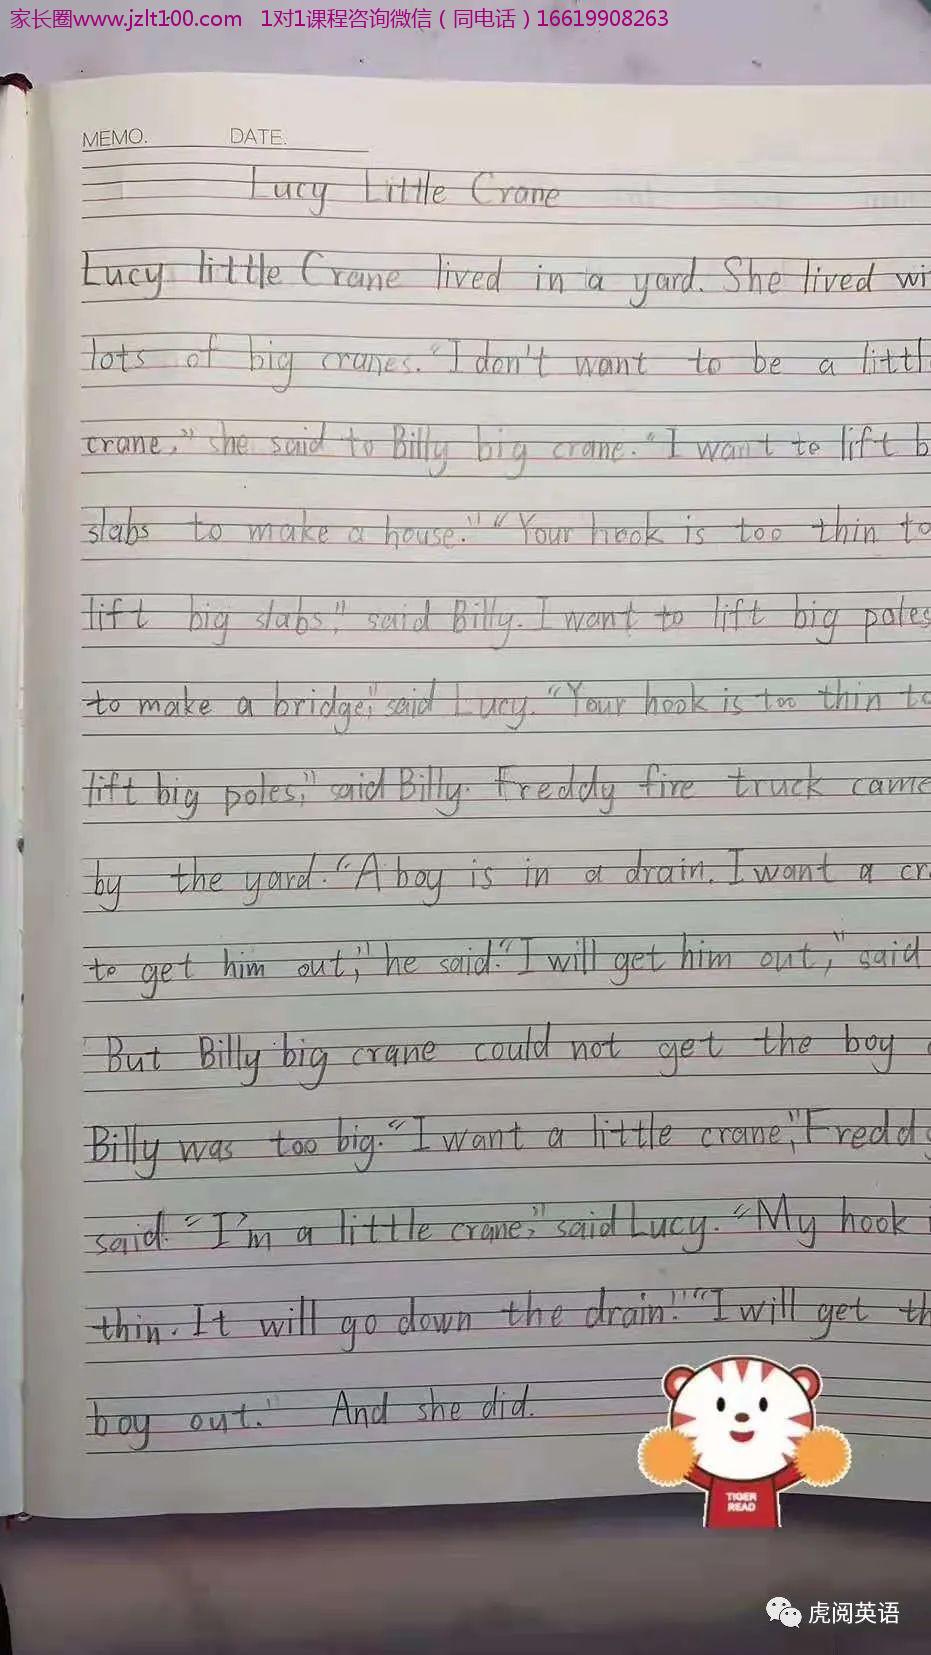 家长圈www.jzlt100.com 1对1课程咨询微信（同电话）16619908263
MEMO. DATE.
Lucy Little Crane
Lucy little Crane lived in a yard. She lived wi
lots of big cranes. "I don't want to be a littl
crane," she said to Billy big crane. "I want to lift b
slabs to make a house." "Your hook is too thin to
lift big slabs," said Billy. I want to lift big poles
to make a bridge," said Lucy. "Your hook is too thin to
lift big poles," said Billy. Freddy fire truck came
by the yard. "A boy is in a drain. I want a cr
to get him out," he said. "I will get him out," said
But Billy big crane could not get the boy
Billy was too big. "I want a little crane," Freddy
said. "I'm a little crane," said Lucy. "My hook
thin. It will go down the drain." "I will get th
boy out." And she did.
TIGER
READ
虎阅英语